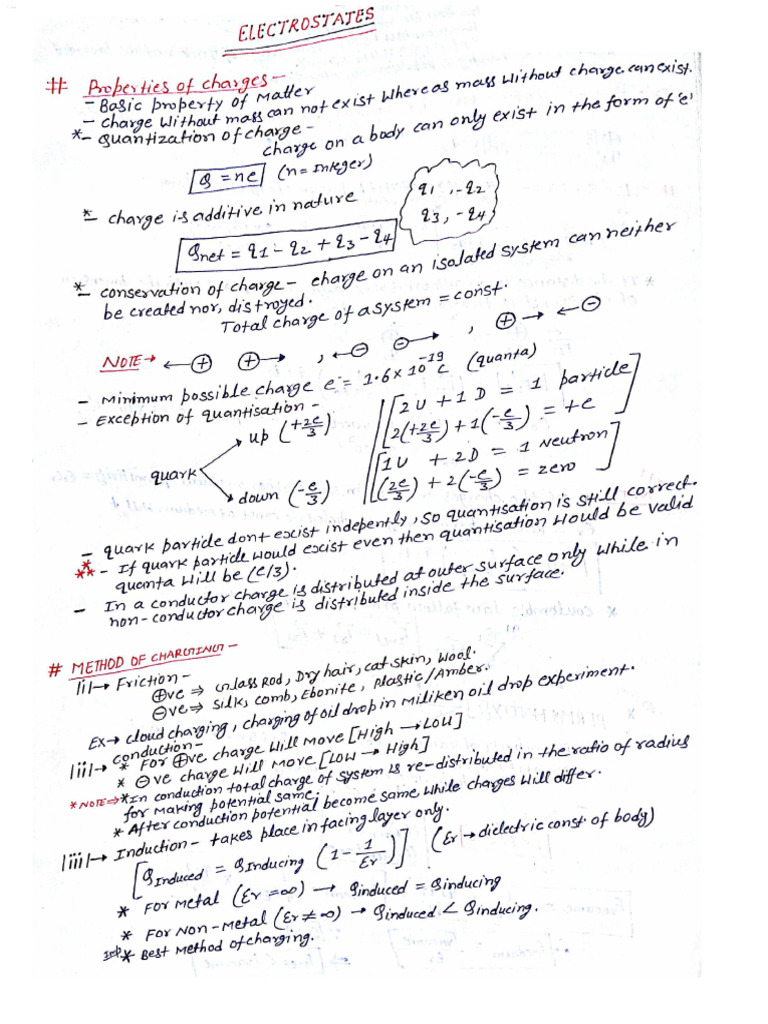 ELECTROSTATES
# Properties of charges -
- Basic property of Matter
- Charge Without mass can not exist Where as mass Without charge can exist.
*- Quantization of charge -
charge on a body can only exist in the form of 'e'
Q = ne (n = Integer)
q1, -q2
q3, -q4
*- charge is additive in nature
Qnet = q1 - q2 + q3 - q4
*- conservation of charge - charge on an isolated system can neither
be created nor, distroyed.
Total charge of a system = const.
NOTE → ←⊕ ⊕→ , ←⊖ ⊖→ , ⊕→ ←⊖
- Minimum possible charge e⁻ = 1.6 x 10⁻¹⁹ C (quanta)
- Exception of quantisation -
quark
up (+2e/3)
down (-e/3)
2U + 1D = 1 particle
2(+2e/3) + 1(-e/3) = +e
1U + 2D = 1 Neutron
(2e/3) + 2(-e/3) = zero
- quark particle dont exist indepently, so quantisation is still correct.
** - If quark particle would exist even then quantisation would be valid
quanta will be (e/3).
- In a conductor charge is distributed at outer surface only while in
non-conductor charge is distributed inside the surface.
# METHOD OF CHARGING -
|i|→ Friction -
⊕ve ⇒ Glass Rod, Dry hair, cat skin, wool.
⊖ve ⇒ silk, comb, Ebonite, plastic/Amber.
Ex→ cloud charging, charging of oil drop in Miliken oil drop experiment.
|ii|→ conduction -
* For ⊕ve charge will move [High → Low]
* ⊖ve charge will move [Low → High]
* NOTE ⇒ * In conduction total charge of system is re-distributed in the ratio of radius
for making potential same.
* After conduction potential become same while charges will differ.
|iii|→ Induction - takes place in facing layer only.
[QInduced = QInducing (1 - 1/Er)] (Er → dielectric const of body)
* For Metal (Er = ∞) → Qinduced = Qinducing
* For Non-Metal (Er ≠ ∞) → Qinduced < Qinducing.
Imp* Best Method of charging.